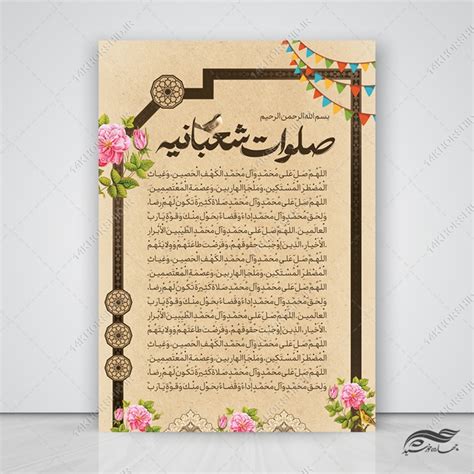 بسم الله الرحمن الرحیم
صلوات شعبانیه
اللهُمَّ صَلِّ عَلى مُحَمَّدٍ وَآلِ مُحَمَّدٍ الْكَهْفِ الْحَصينِ، وَغِياثِ
الْمُضْطَرِّ الْمُسْتَكينِ، وَمَلْجَإِ الْهارِبينَ، وَعِصْمَةِ الْمُعْتَصِمينَ.
اللهُمَّ صَلِّ عَلى مُحَمَّدٍ وَآلِ مُحَمَّدٍ صَلاةً كَثيرَةً تَكُونُ لَهُمْ رِضاً
وَلِحَقِّ مُحَمَّدٍ وَآلِ مُحَمَّدٍ اَداءً وَقَضاءً بِحَوْلٍ مِنْكَ وَقُوَّةٍ يا رَبَّ
الْعالَمينَ. اللهُمَّ صَلِّ عَلى مُحَمَّدٍ وَآلِ مُحَمَّدٍ الطَّيِّبينَ الْاَبْرارِ
الْاَخْيارِ، الَّذينَ اَوْجَبْتَ حُقُوقَهُمْ، وَفَرَضْتَ طاعَتَهُمْ وَوِلايَتَهُمْ
اللهُمَّ صَلِّ عَلى مُحَمَّدٍ وَآلِ مُحَمَّدٍ الْكَهْفِ الْحَصينِ، وَغِياثِ
الْمُضْطَرِّ الْمُسْتَكينِ، وَمَلْجَإِ الْهارِبينَ، وَعِصْمَةِ الْمُعْتَصِمينَ.
اللهُمَّ صَلِّ عَلى مُحَمَّدٍ وَآلِ مُحَمَّدٍ صَلاةً كَثيرَةً تَكُونُ لَهُمْ رِضاً
وَلِحَقِّ مُحَمَّدٍ وَآلِ مُحَمَّدٍ اَداءً وَقَضاءً بِحَوْلٍ مِنْكَ وَقُوَّةٍ يا رَبَّ
الْعالَمينَ. اللهُمَّ صَلِّ عَلى مُحَمَّدٍ وَآلِ مُحَمَّدٍ الطَّيِّبينَ الْاَبْرارِ
الْاَخْيارِ، الَّذينَ اَوْجَبْتَ حُقُوقَهُمْ، وَفَرَضْتَ طاعَتَهُمْ وَوِلايَتَهُمْ
اللهُمَّ صَلِّ عَلى مُحَمَّدٍ وَآلِ مُحَمَّدٍ الْكَهْفِ الْحَصينِ، وَغِياثِ
الْمُضْطَرِّ الْمُسْتَكينِ، وَمَلْجَإِ الْهارِبينَ، وَعِصْمَةِ الْمُعْتَصِمينَ.
اللهُمَّ صَلِّ عَلى مُحَمَّدٍ وَآلِ مُحَمَّدٍ صَلاةً كَثيرَةً تَكُونُ لَهُمْ رِضاً
وَلِحَقِّ مُحَمَّدٍ وَآلِ مُحَمَّدٍ اَداءً وَقَضاءً بِحَوْلٍ مِنْكَ وَقُوَّةٍ يا رَبَّ